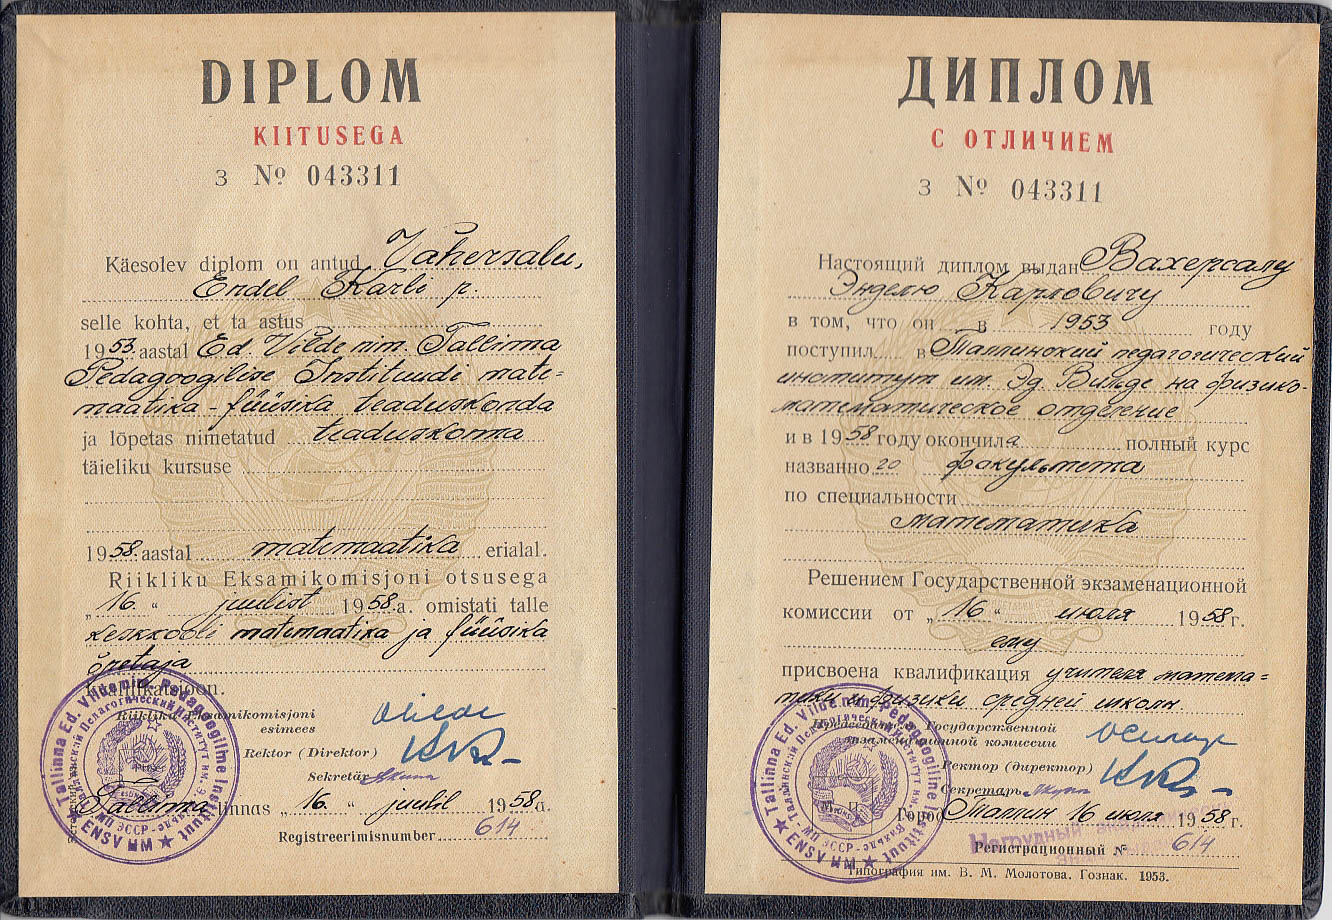 DIPLOM
KIITUSEGA
З № 043311
Käesolev diplom on antud Vähersalu,
Endel Karli p.
selle kohta, et ta astus
1953. aastal Ed. Vilde nim. Tallinna
Pedagoogilise Instituudi mate-
maatika-füüsika teaduskonda
ja lõpetas nimetatud teaduskonna
täieliku kursuse
1958. aastal matemaatika erialal.
Riikliku Eksamikomisjoni otsusega
„16.“ juulist 1958.a. omistati talle
keskkooli matemaatika ja füüsika
õpetaja
kvalifikatsioon.
Riikliku Eksamikomisjoni
esimees
Rektor (Direktor)
Sekretär
Tallinna linnas „16.“ juulil 1958 a.
Registreerimisnumber 614
Tallinna Ed. Vildenim. Pedagoogiline Instituut
ENSV HM
ДИПЛОМ
С ОТЛИЧИЕМ
З № 043311
Настоящий диплом выдан Вахерсалу
Энделю Карловичу
в том, что он в 1953 году
поступил в Таллинский педагогический
институт им. Эд. Вильде на физико-
математическое отделение
и в 1958 году окончил а полный курс
названно го факультета
по специальности
математика
Решением Государственной экзаменационной
комиссии от „16“ июля 1958 г.
ему
присвоена квалификация учителя матема-
тики и физики средней школы
Председатель Государственной
экзаменационной комиссии
Ректор (директор)
Секретарь
Город Таллин 16 июля 1958 г.
Нагрудный
Регистрационный № 614
Типография им. В. М. Молотова. Гознак. 1953.
Tallinna Ed. Vilde nim. Pedagoogiline Instituut
ENSV HM